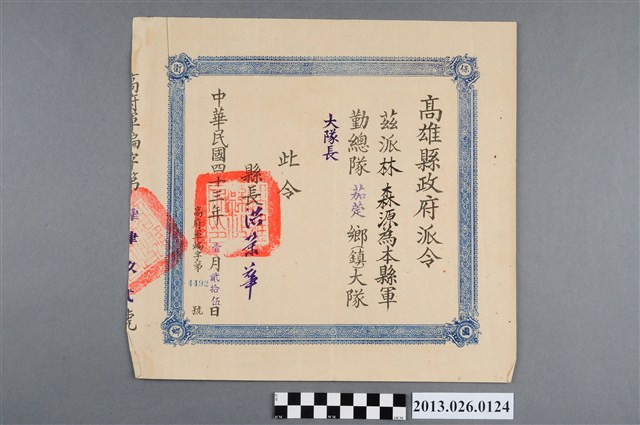 高雄縣政府派令
茲派林森源為本縣軍
勤總隊茄萣鄉鎮大隊
大隊長
此令
縣長洪榮華
中華民國四十三年壹月貳拾伍日
高府軍編字第4492號
高府軍編字第
號
保
衛
國
2013.026.0124